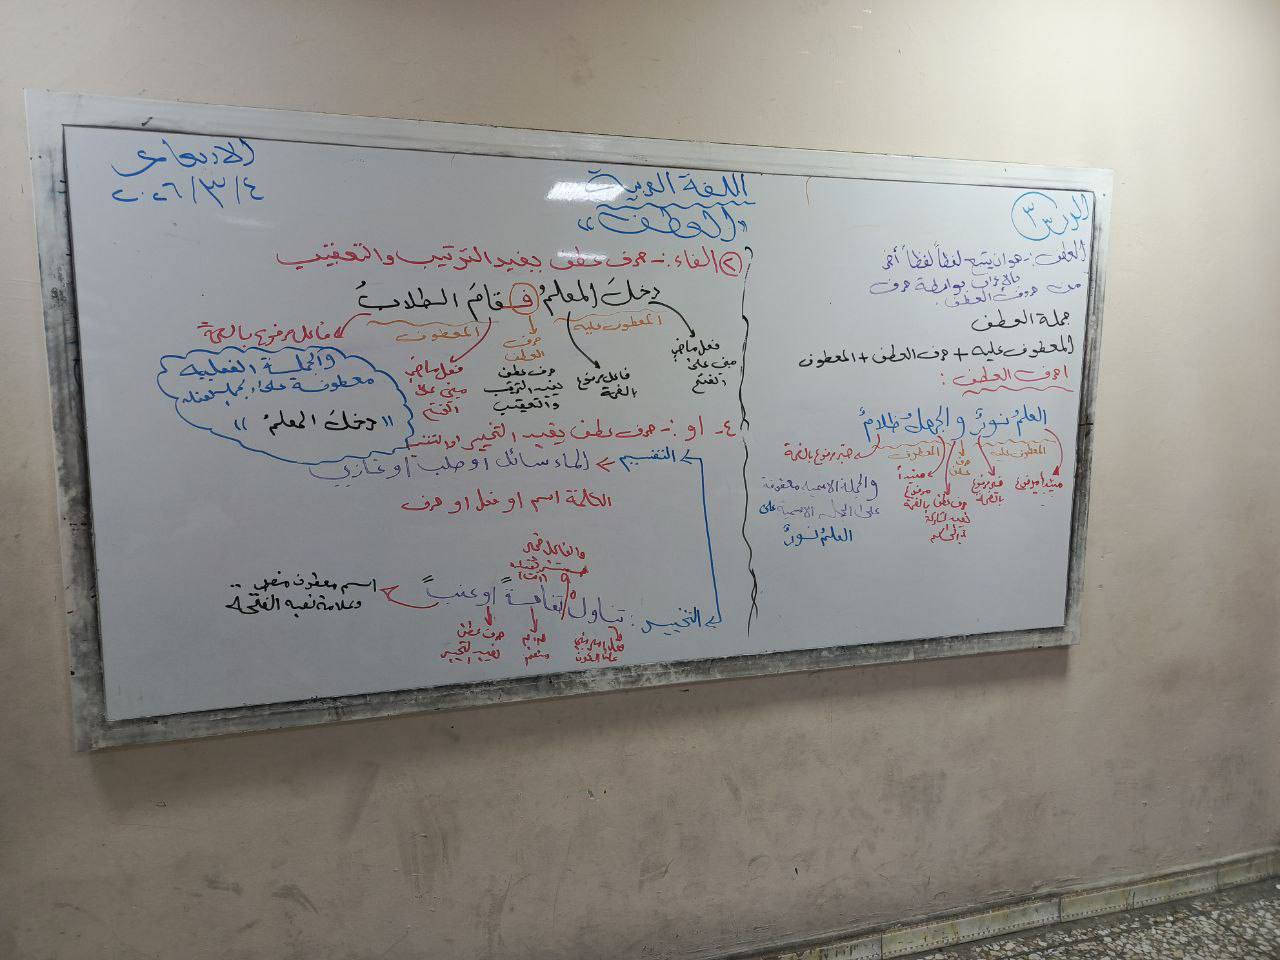 الدرس ٣٣
اللغة العربية
"العطف"
الاربعاء
٢٠٢٦/٣/٤
العطف :- هو ان يتبع لفظاً لفظاً آخر
بالاعراب بواسطة حرف
من حروف العطف.
جملة العطف
المعطوف عليه + حرف العطف + المعطوف
احرف العطف :
العلمُ نورٌ والجهلُ ظلامٌ
المعطوف عليه
حرف عطف
المعطوف
مبتدأ مرفوع
خبر مرفوع بالضمة
حرف عطف يفيد
مبتدأ مرفوع بالضمة
خبر مرفوع بالضمة
والجملة الاسمية معطوفة
على الجملة الاسمية
العلمُ نورٌ
٢ الفاء :- حرف عطف يفيد الترتيب والتعقيب
دخلَ المعلمُ فقامَ الطلابُ
المعطوف عليه
حرف العطف
المعطوف
فعل ماضي مبني على الفتح
فاعل مرفوع الضمة
حرف عطف يفيد الترتيب والتعقيب
فعل ماضي مبني على الفتح
فاعل مرفوع بالضمة
والجملة الفعلية
معطوفة على
"دخلَ المعلمُ"
٤- او :- حرف عطف يفيد التخيير او التقسيم
التقسيم
الماء سائل او صلب او غازي
الكلمة اسم او فعل او حرف
والفاعل ضمير مستتر تقديره (انت)
التخيير : تناول تفاحةً او عنباً
اسم معطوف منصوب
وعلامة نصبه الفتحة
مبني على السكون
حرف عطف يفيد التخيير